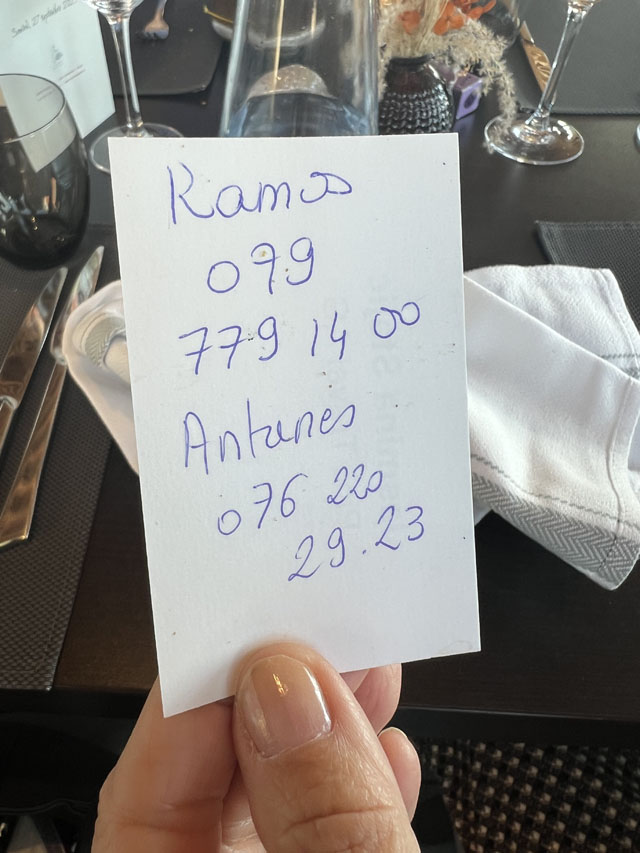 Ramos
079
779 14 00
Antunes
076 220
29.23